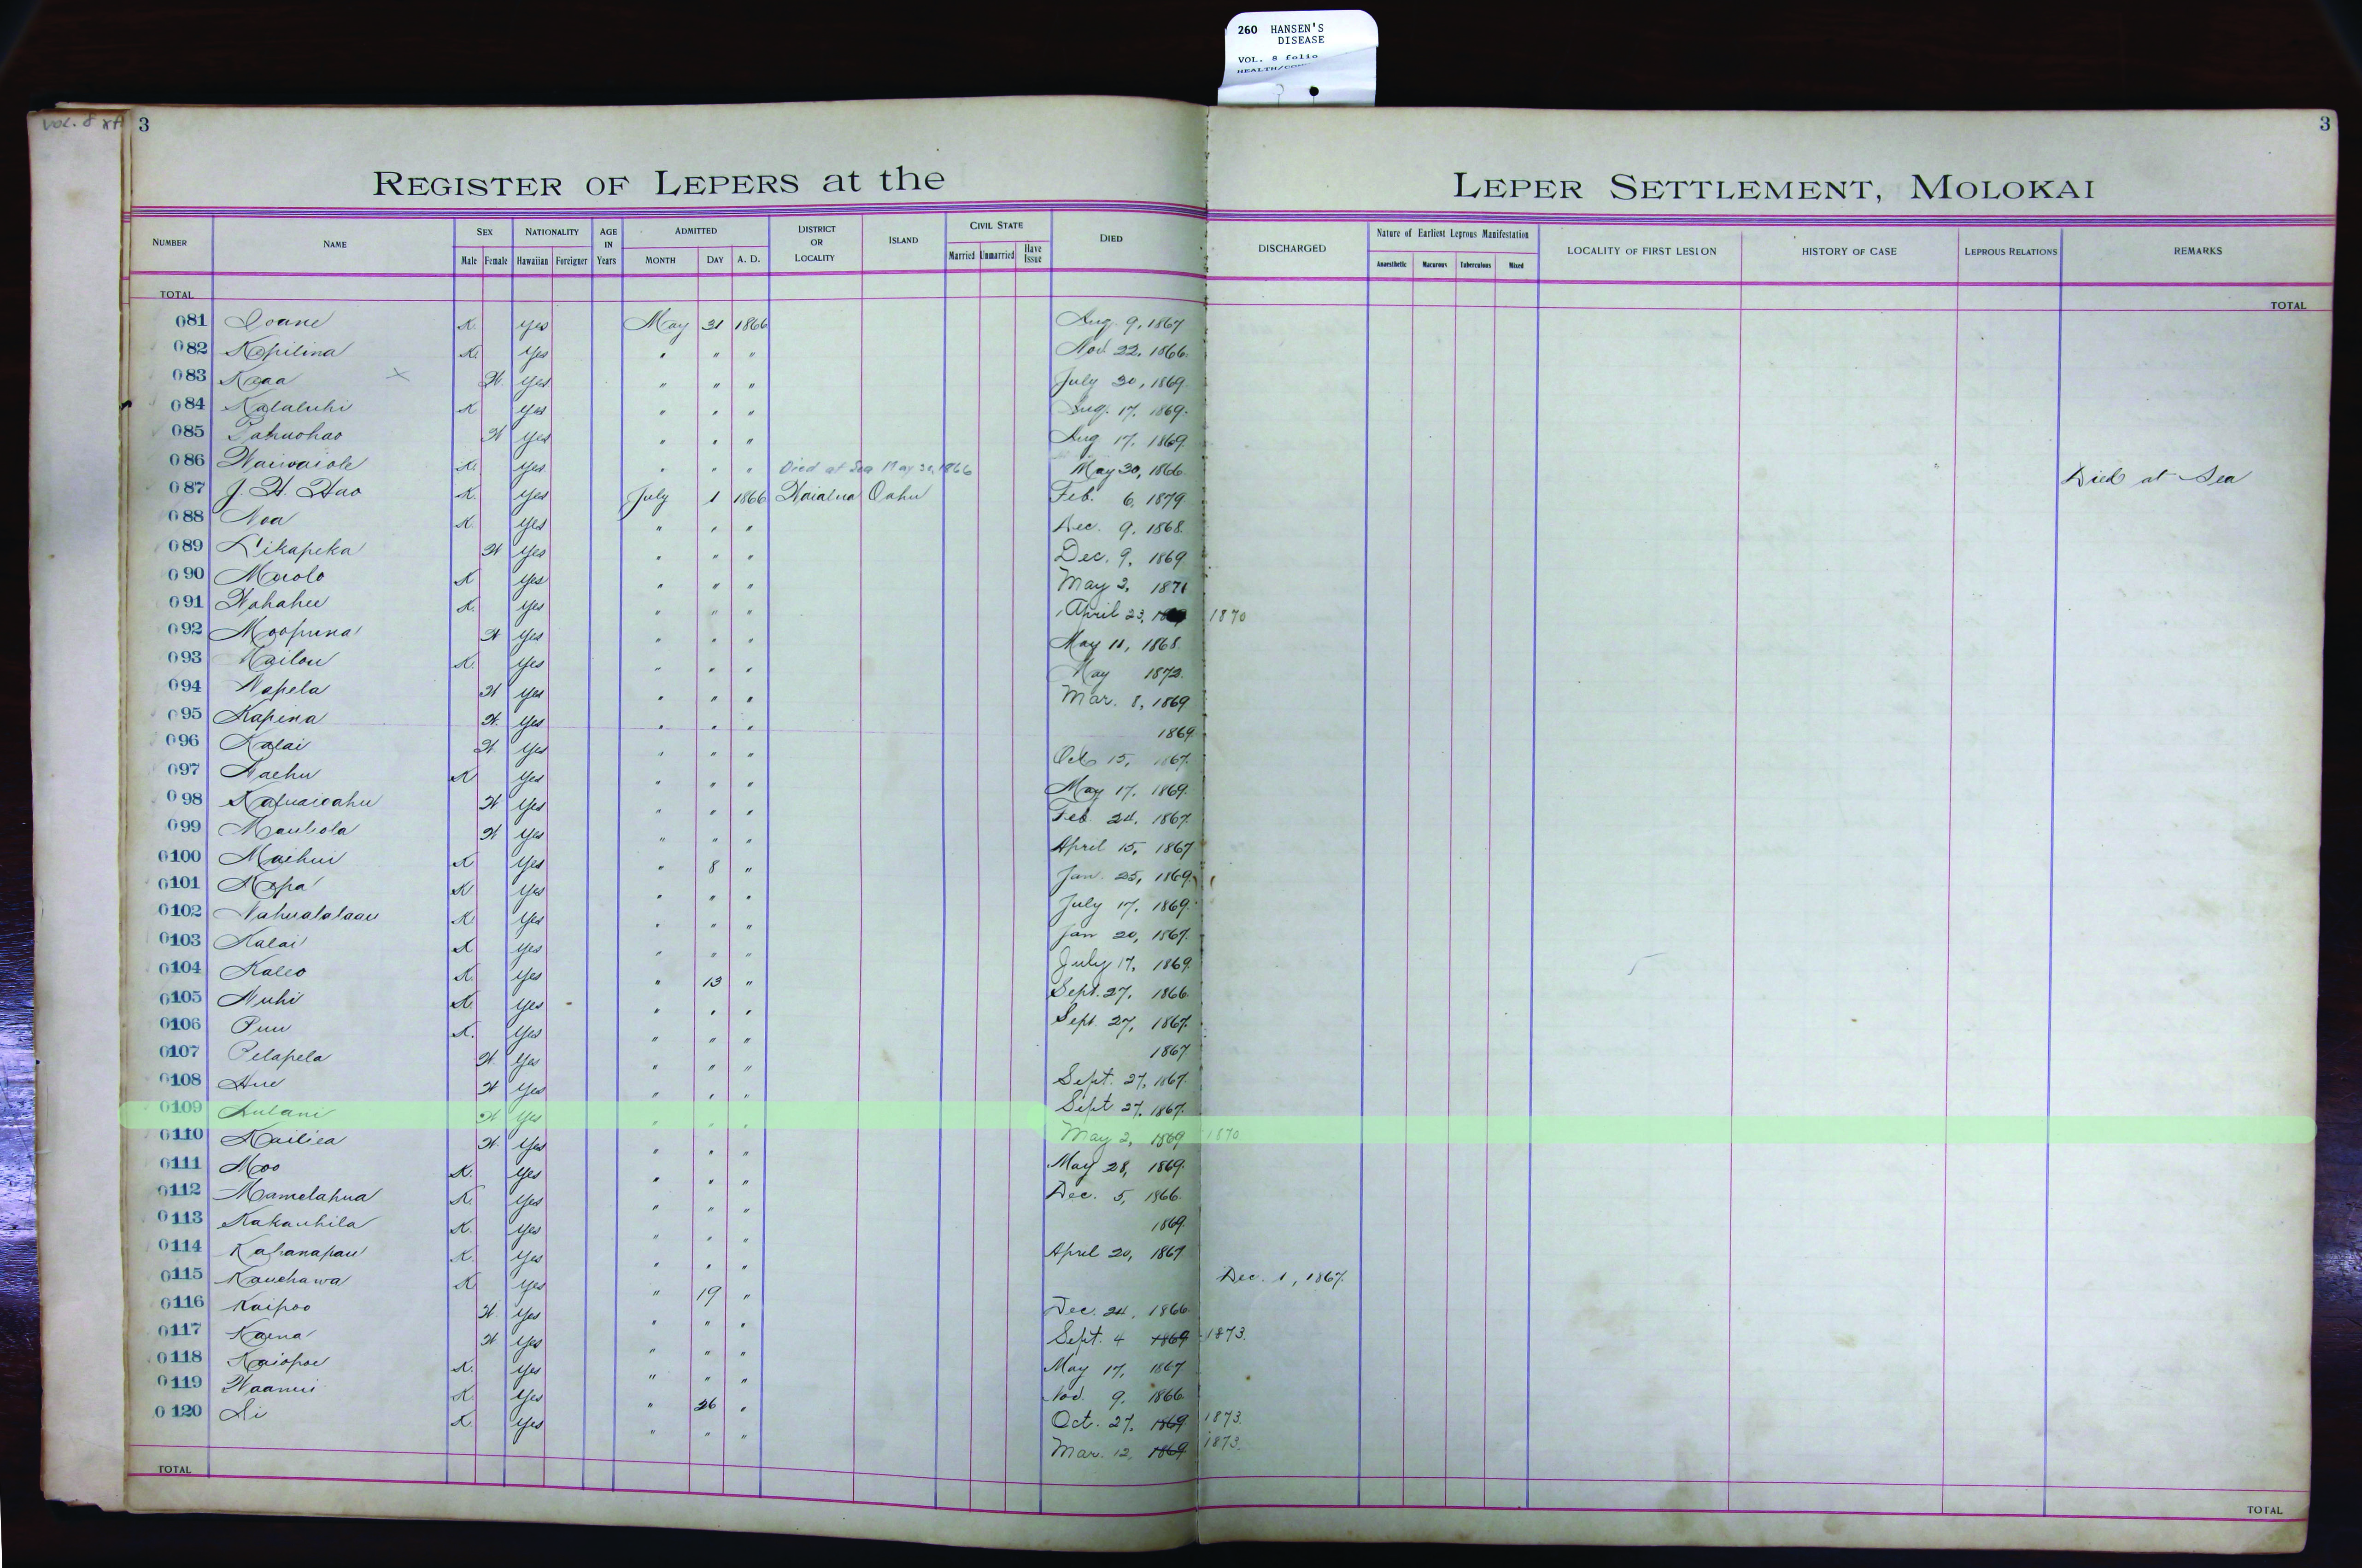 260 HANSEN'S
DISEASE
VOL. 8 folio
VOL. 8
3
3
REGISTER OF LEPERS at the LEPER SETTLEMENT, MOLOKAI
NUMBER NAME SEX NATIONALITY AGE IN Years ADMITTED DISTRICT OR LOCALITY ISLAND CIVIL STATE DIED DISCHARGED Nature of Earliest Leprous Manifestation LOCALITY OF FIRST LESION HISTORY OF CASE LEPROUS RELATIONS REMARKS
Male Female Hawaiian Foreigner MONTH DAY A. D. Married Unmarried Have Issue Anaesthetic Macurous Tuberculous Mixed
TOTAL TOTAL
081 Ioane K. Yes May 31 1866 Aug. 9, 1867
082 Kapilina K. Yes " " " Nov. 22, 1866.
083 Kaaa W. Yes " " " July 30, 1869.
084 Kalaluhi K Yes " " " Aug. 17, 1869.
085 Pahuohao W Yes " " " Aug 17, 1869.
086 Waiwaiole K. Yes " " " Died at Sea May 30, 1866 May 30, 1866. Died at Sea
087 J. H. Hao K. Yes July 1 1866 Waialua Oahu Feb. 6, 1879
088 Noa K. Yes " " " Dec. 9, 1868.
089 Likapeka W Yes " " " Dec. 9, 1869
090 Maiolo K Yes " " " May 2, 1871
091 Wahahee K. Yes " " " April 23, 1870
092 Moopuna W Yes " " " May 11, 1868.
093 Kailou K. Yes " " " May 1872.
094 Napela W Yes " " " Mar. 8, 1869
095 Kapina W. Yes " " " 1869.
096 Kalai W. Yes " " " Oct 15, 1867.
097 Naehu K Yes " " " May 17, 1869.
098 Kapuaioahu W Yes " " " Feb. 24, 1867.
099 Mauliola W Yes " " " April 15, 1867
0100 Maehui K Yes " 8 " Jan. 25, 1869.
0101 Napa K Yes " " " July 17, 1869.
0102 Nahualalaau K Yes " " " Jan 20, 1867.
0103 Kalai K Yes " " " July 17, 1869.
0104 Kaleo K. Yes " 13 " Sept. 27, 1866.
0105 Nuhi K. Yes " " " Sept. 27, 1867.
0106 Puu K. Yes " " " 1867
0107 Pelapela W. Yes " " " Sept. 27, 1867.
0108 Hue W Yes " " " Sept 27, 1867.
0109 Lulani W Yes " " " May 2, 1869 1870
0110 Kailiea W. Yes " " " May 28, 1869.
0111 Moo K. Yes " " " Dec. 5, 1866.
0112 Mamelahua K. Yes " " " 1869.
0113 Kakauhila K. Yes " " " April 20, 1867
0114 Kahanapau K. Yes " " " Dec. 1, 1867.
0115 Kauehawa K Yes " 19 " Dec. 24, 1866.
0116 Kaipoo W. Yes " " " Sept. 4 1869 1873.
0117 Kaena W Yes " " " May 17, 1867
0118 Kaiopoe K. Yes " " " Nov. 9, 1866.
0119 Waanui K. Yes " 26 " Oct. 27, 1869 1873.
0120 Li K. Yes " " " Mar. 12, 1869 1873.
TOTAL TOTAL